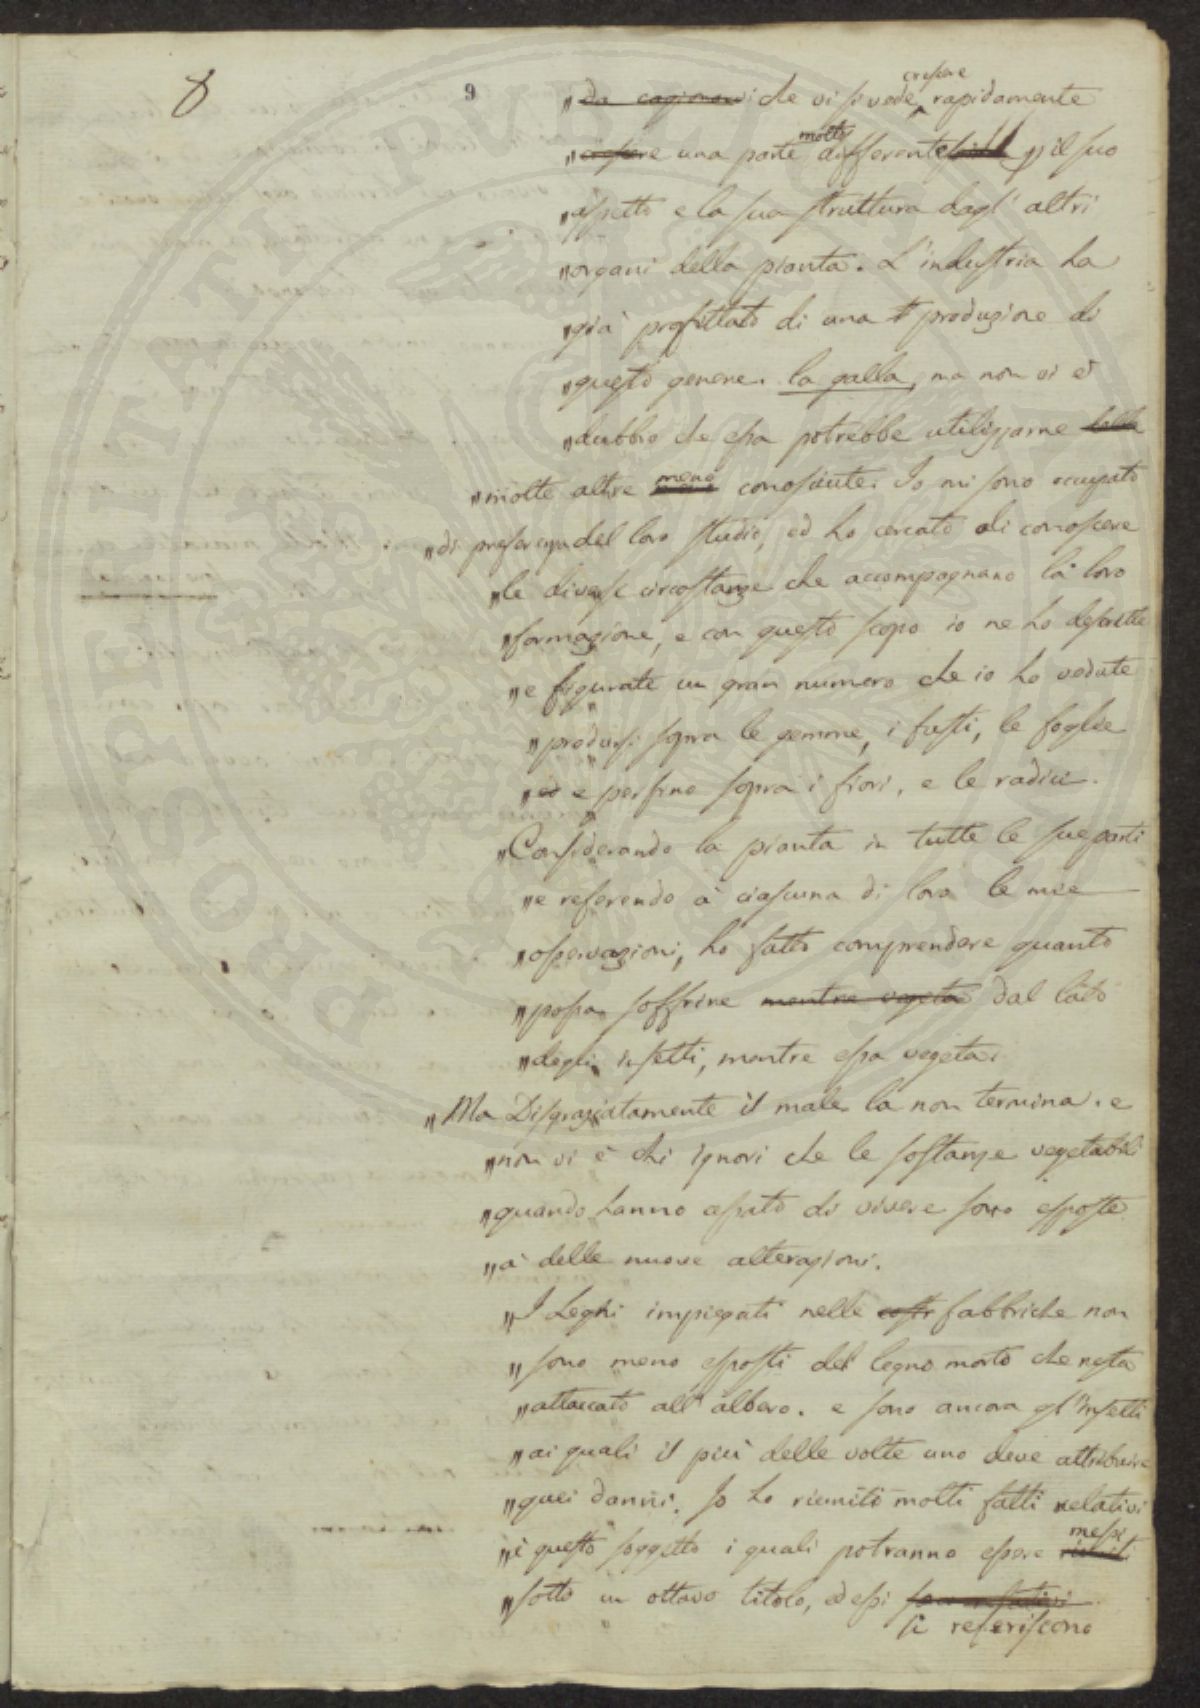 8 9 „da cagionarvi che vi si vede crescere rapidamente
„crescere una parte molto differente pel suo
„aspetto e la sua struttura dagl' altri
„organi della pianta. L'industria ha
„già profittato di una produzione di
„questo genere. la galla, ma non vi è
„dubbio che essa potrebbe utilizzarne delle
„molte altre meno conosciute. Io mi sono occupato
„di preferenza del loro studio, ed ho cercato di conoscere
„le diverse circostanze che accompagnano la loro
„formazione, e con questo scopo io ne ho descritte
„e figurate un gran numero che io ho vedute
„prodursi sopra le gemme, i fusti, le foglie
„ed e perfino sopra i fiori, e le radici.
„Considerando la pianta in tutte le sue parti
„e referendo a ciascuna di loro le mie
„osservazioni, ho fatto comprendere quanto
„possa soffrire mentre vegeta dal lato
„degli insetti, mentre essa vegeta.
„Ma Disgraziatamente il male la non termina. e
„non vi è chi ignori che le sostanze vegetabili
„quando hanno cessato di vivere sono esposte
„a delle nuove alterazioni.
„I Legni impiegati nelle costr fabbriche non
„sono meno esposti del legno morto che resta
„attaccato all' albero. e sono ancora gl'Insetti
„ai quali il più delle volte uno deve attribuire
„quei danni. Io ho riuniti molti fatti relativi
„è questo soggetto i quali potranno essere riuniti messi
„sotto un ottavo titolo, ed essi sono relativi
si referiscono
PROSPERITATI PUBLICAE